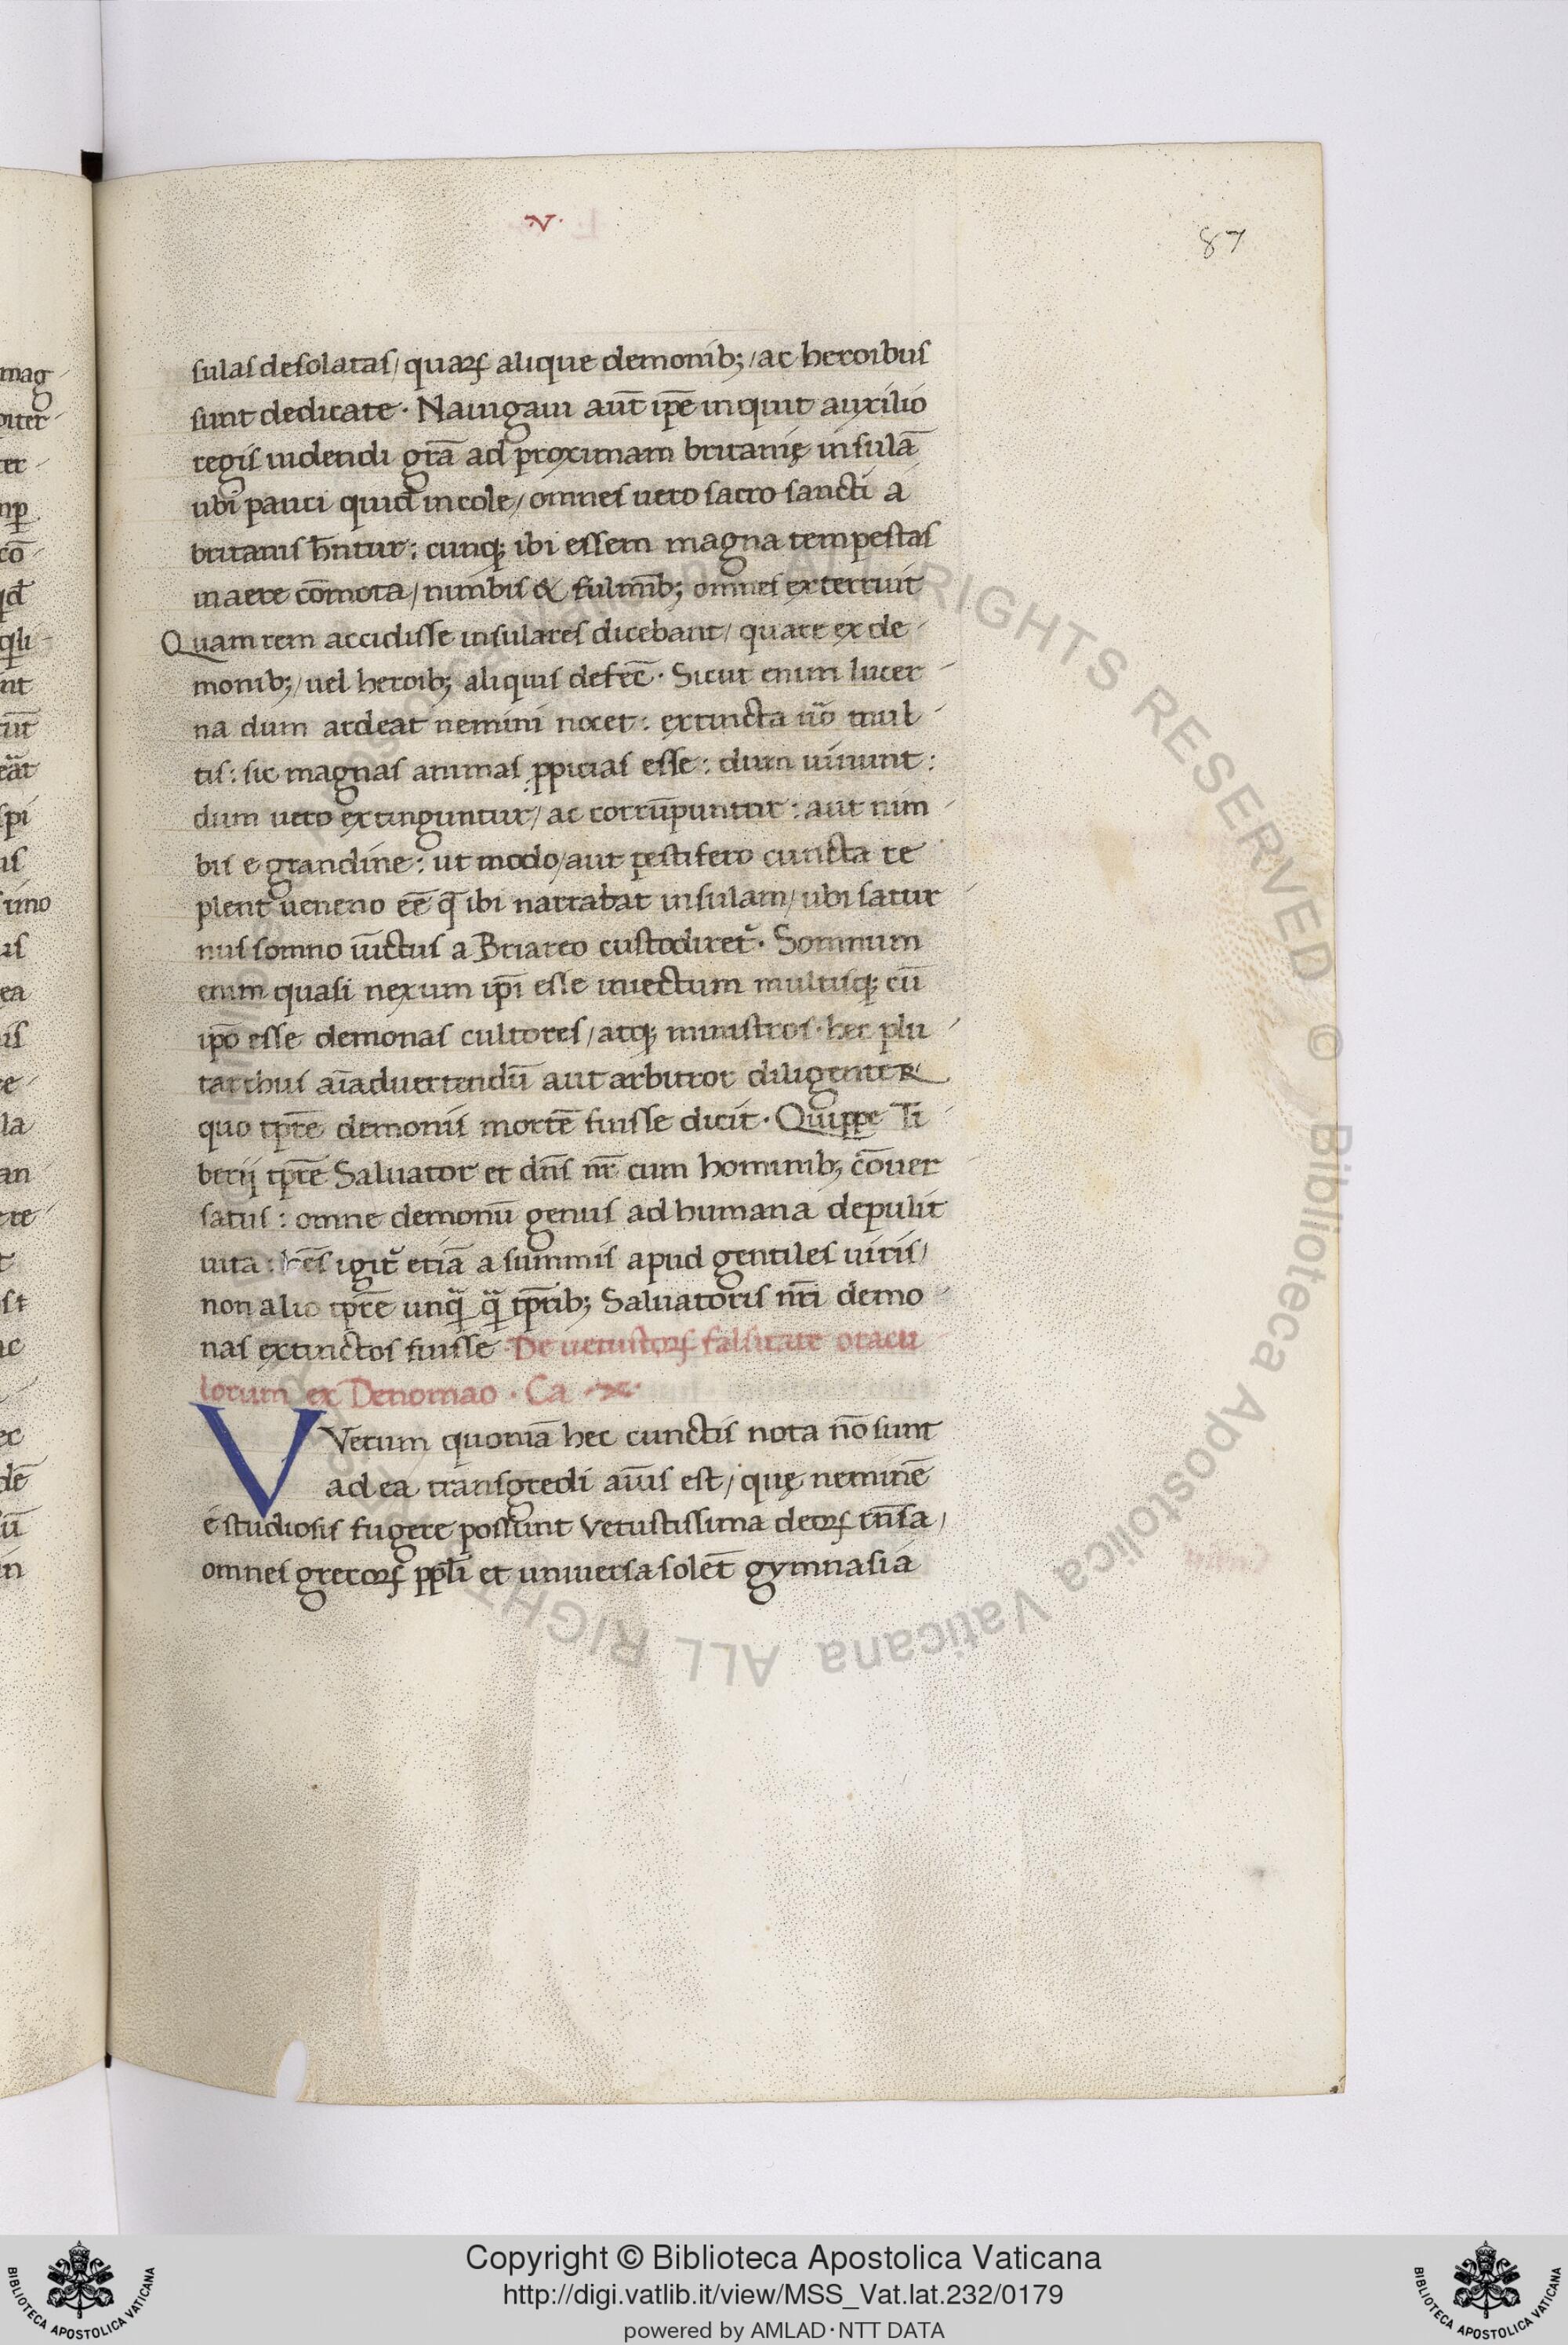 ·v·
87
sulas desolatas/ quaꝝ alique demonib;/ ac heroibus
sunt dedicate · Nauigaui aut̄ ip̄e inquit auxilio
regis uidendi gr̄a ad proximam britanię insulā
ubi pauci quid̄ incole/ omnes uero sacro sancti a
britanis h̄ntur : cunq; ibi essem magna tempestas
in aere cōmota/ nimbis & fulmīb; omnes exterruit
Quam rem accidisse insulares dicebant/ quare ex de
monib;/ uel heroib; aliquis defec̄ · Sicut enim lucer
na dum ardeat nemini nocet : extincta ūo mul
tis : sic magnas animas ꝓpicias esse : dum uiuunt :
dum uero extinguntur/ ac corrūpuntur : aut nim
bis e grandine : ut modo/ aut pestifero cuncta re
plent ueneno eē q̄ ibi narrabat insulam/ ubi satur
nus somno uīctus a Briareo custodiret᷑ · Somnum
enim quasi nexum ip̄i esse inuectum multisq; cū
ip̄o esse demonas cultores/ atq; ministros · hec plu
tarchus aīaduertendū aut arbitror diligenter
quo tp̄re demonis mortē fuisse dicit · Quippe Ti
berij tp̄re Saluator et dn̄s nr̄ cum hominib; cōuer
satus : omne demonū genus ad humana depulit
uita : h̄es igit᷑ etiā a summis apud gentiles uiris/
non alio tp̄re unq̄ q̄ tp̄rib; Saluatoris nr̄i demo
nas extinctos fuisse · De uetustoꝝ falsitate oracu
lorum ex Denomao · Ca · x ·
V Verum quoniā hec cunctis nota nō sunt
ad ea transgredi aīus est/ quę neminē
e studiosis fugere possunt vetustissima deoꝝ rn̄sa/
omnes grecoꝝ pp̄li et uniuersa solet̄ gymnasia
mag
er
cō
nt
us
ea
is
la
an
st
ec
dē
ū
in
© Biblioteca Apostolica Vaticana ALL RIGHTS RESERVED
Copyright © Biblioteca Apostolica Vaticana
http://digi.vatlib.it/view/MSS_Vat.lat.232/0179
powered by AMLAD·NTT DATA
BIBLIOTECA APOSTOLICA VATICANA
BIBLIOTECA APOSTOLICA VATICANA